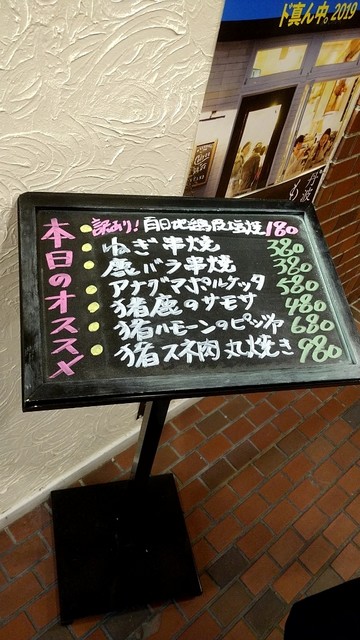 ド真ん中。2019
丹波
本日のオススメ
訳あり! 百日地鶏皮塩焼 180
ねぎ串焼 380
鹿バラ串焼 380
アナグマポルケッタ 580
猪鹿のサモサ 480
猪ハモーンのピッツァ 680
猪スネ肉丸焼き 980